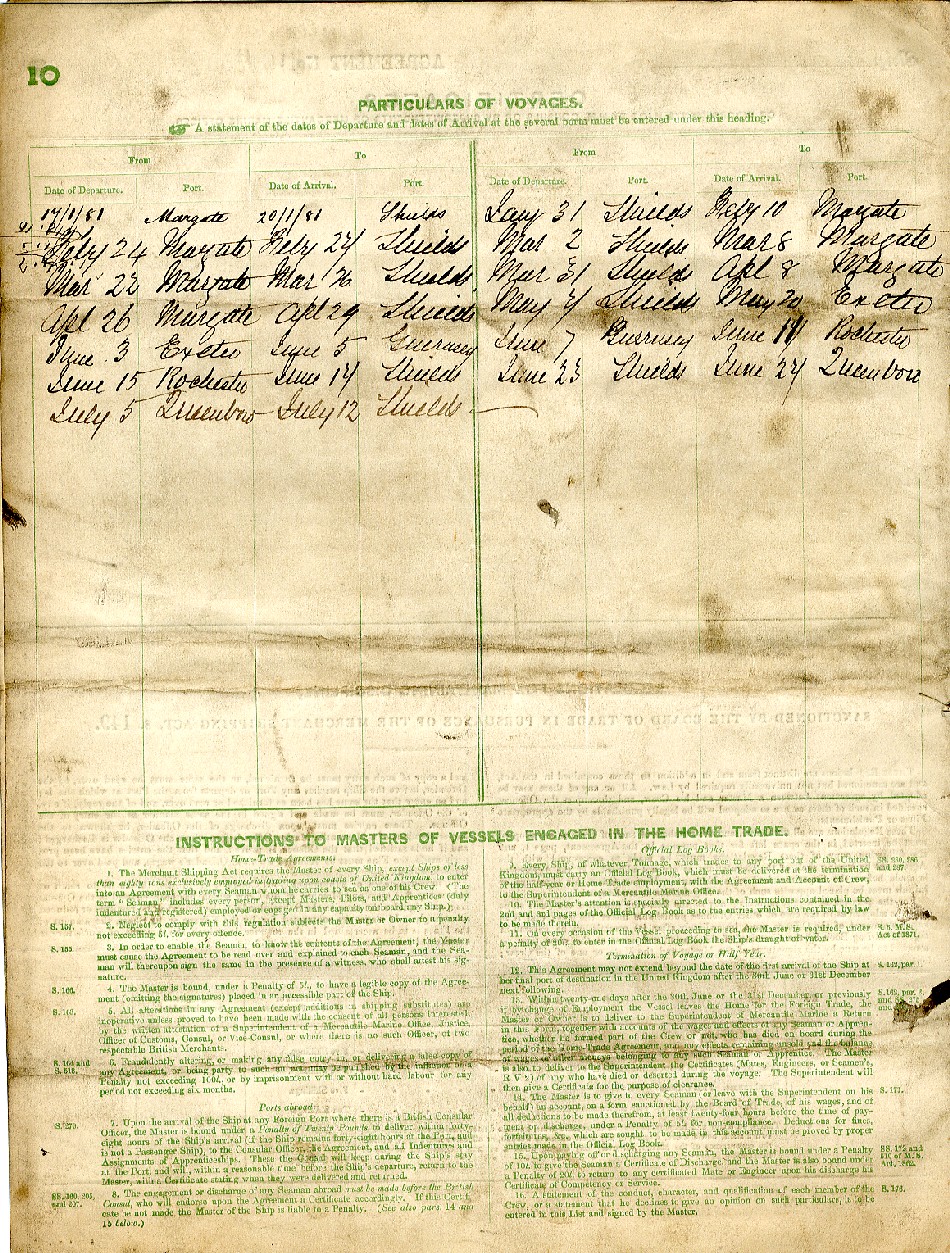 10
PARTICULARS OF VOYAGES.
A statement of the dates of Departure and dates of Arrival at the several ports must be entered under this heading.
From To From To
Date of Departure. Port. Date of Arrival. Port. Date of Departure. Port. Date of Arrival. Port.
17/1/81 Margate 20/1/81 Shields Jany 31 Shields Feby 10 Margate
Feby 24 Margate Feby 27 Shields Mar 2 Shields Mar 8 Margate
Mar 22 Margate Mar 26 Shields Mar 31 Shields Apl 8 Margate
Apl 26 Margate Apl 29 Shields May Shields May Exeter
June 3 Exeter June 5 Guernsey June 7 Guernsey June Rochester
June 15 Rochester June 17 Shields June 23 Shields June 27 Queenboro
July 5 Queenboro July 12 Shields
INSTRUCTIONS TO MASTERS OF VESSELS ENGAGED IN THE HOME TRADE.
Home Trade Agreements.
1. The Merchant Shipping Act requires the Master of every Ship, except Ships of less
than eighty tons exclusively employed in trading upon coasts of United Kingdom, to enter
into an Agreement with every Seaman whom he carries to sea as one of his Crew. (The
term "Seaman" includes every person, except Masters, Pilots, and Apprentices duly
indentured and registered, employed or engaged in any capacity on board any Ship.)
S. 157. 2. Neglect to comply with this regulation subjects the Master or Owner to a penalty
not exceeding 5l. for every offence.
3. In order to enable the Seaman to know the contents of the Agreement, the Master
must cause the Agreement to be read over and explained to each Seaman, and the Sea-
man will thereupon sign the same in the presence of a witness, who shall attest his sig-
nature.
4. The Master is bound, under a Penalty of 5l., to have a legible copy of the Agree-
ment (omitting the signatures) placed in an accessible part of the Ship.
5. All alterations in any Agreement (except additions in shipping substitutes) are
inoperative unless proved to have been made with the consent of all persons interested,
by the written attestation of a Superintendent of a Mercantile Marine Office, Justice,
Officer of Customs, Consul, or Vice-Consul, or where there is no such Officer, of two
respectable British Merchants.
6. Fraudulently altering, or making any false entry in, or delivering a false copy of
any Agreement, or being party to such an act may be punished by the infliction of a
Penalty not exceeding 100l., or by imprisonment with or without hard labour for any
period not exceeding six months.
Ports abroad.
7. Upon the arrival of the Ship at any Foreign Port where there is a British Consular
Officer, the Master is bound under a Penalty of Twenty Pounds to deliver within forty-
eight hours of the Ship's arrival (if the Ship remains forty-eight hours at the Port, and
is not a Passenger Ship), to the Consular Officer, the Agreement, and all Indentures and
Assignments of Apprenticeships. These the Consul will keep during the Ship's stay
in the Port, and will, within a reasonable time before the Ship's departure, return to the
Master, with a Certificate stating when they were delivered and returned.
8. The engagement or discharge of any Seaman abroad must be made before the British
Consul, who will endorse upon the Agreement a Certificate accordingly. If this Certifi-
cate be not made the Master of the Ship is liable to a Penalty. (See also pars. 14 and
15 below.)
Official Log Books.
9. Every Ship, of whatever Tonnage, which trades to any port out of the United
Kingdom must carry an Official Log Book, which must be delivered at the termination
of the half-year or Home Trade employment, with the Agreement and Account of Crew,
to the Superintendent of a Mercantile Marine Office.
10. The Master's attention is specially directed to the Instructions contained in the
2nd and 3rd pages of the Official Log Book as to the entries which are required by law
to be made therein.
11. On every occasion of the Vessel proceeding to sea, the Master is required, under
a penalty of 20l. to enter in the Official Log Book the Ship's draught of water.
Termination of Voyage or Half Year.
12. This Agreement may not extend beyond the date of the first arrival of the Ship at
her final port of destination in the United Kingdom after the 30th June or 31st December
next following.
13. Within twenty-one days after the 30th June or the 31st December,
14. The Master is to give to every Seaman or leave with the Superintendent on his
behalf an account, on a form sanctioned by the Board of Trade, of his wages, and of
all deductions to be made therefrom, at least twenty-four hours before the time of pay-
ment or discharge, under a Penalty of 5l. for non-compliance. Deductions for fines,
S. 171.
15. Upon paying off or discharging any Seaman, the Master is bound under a Penalty
of 10l. to give the Seaman a Certificate of Discharge and the Master is also bound under
a Penalty of 20l. to return to any certificated Mate or Engineer upon his discharge his
Certificate of Competency or Service.
16. A statement of the conduct, character, and qualification of each member of the
Crew, or a statement that he declines to give an opinion on such particulars, is to be
entered in this List and signed by the Master.